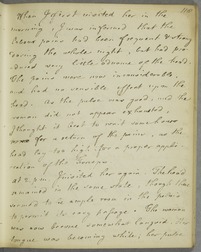 When I first visited her in the
morning, I was informed that the
pains had been frequent & strong
during the whole night, but had pro-
duced very little advance of the head.
The pains were now inconsiderable,
and had no sensible effect upon the
head. As the pulse was good, and the
woman did not appear exhausted
I thought it best to wait some hours
for a return of the pains, as the
head lay too high for a proper appli-
cation of the Forceps
at 2 pm. I visited her again. The head
remained in the same state, though there
seemed to be ample room in the pelvis
to permit its easy passage. The woman
was now become somewhat languid. Her
tongue was becoming white, her pulse